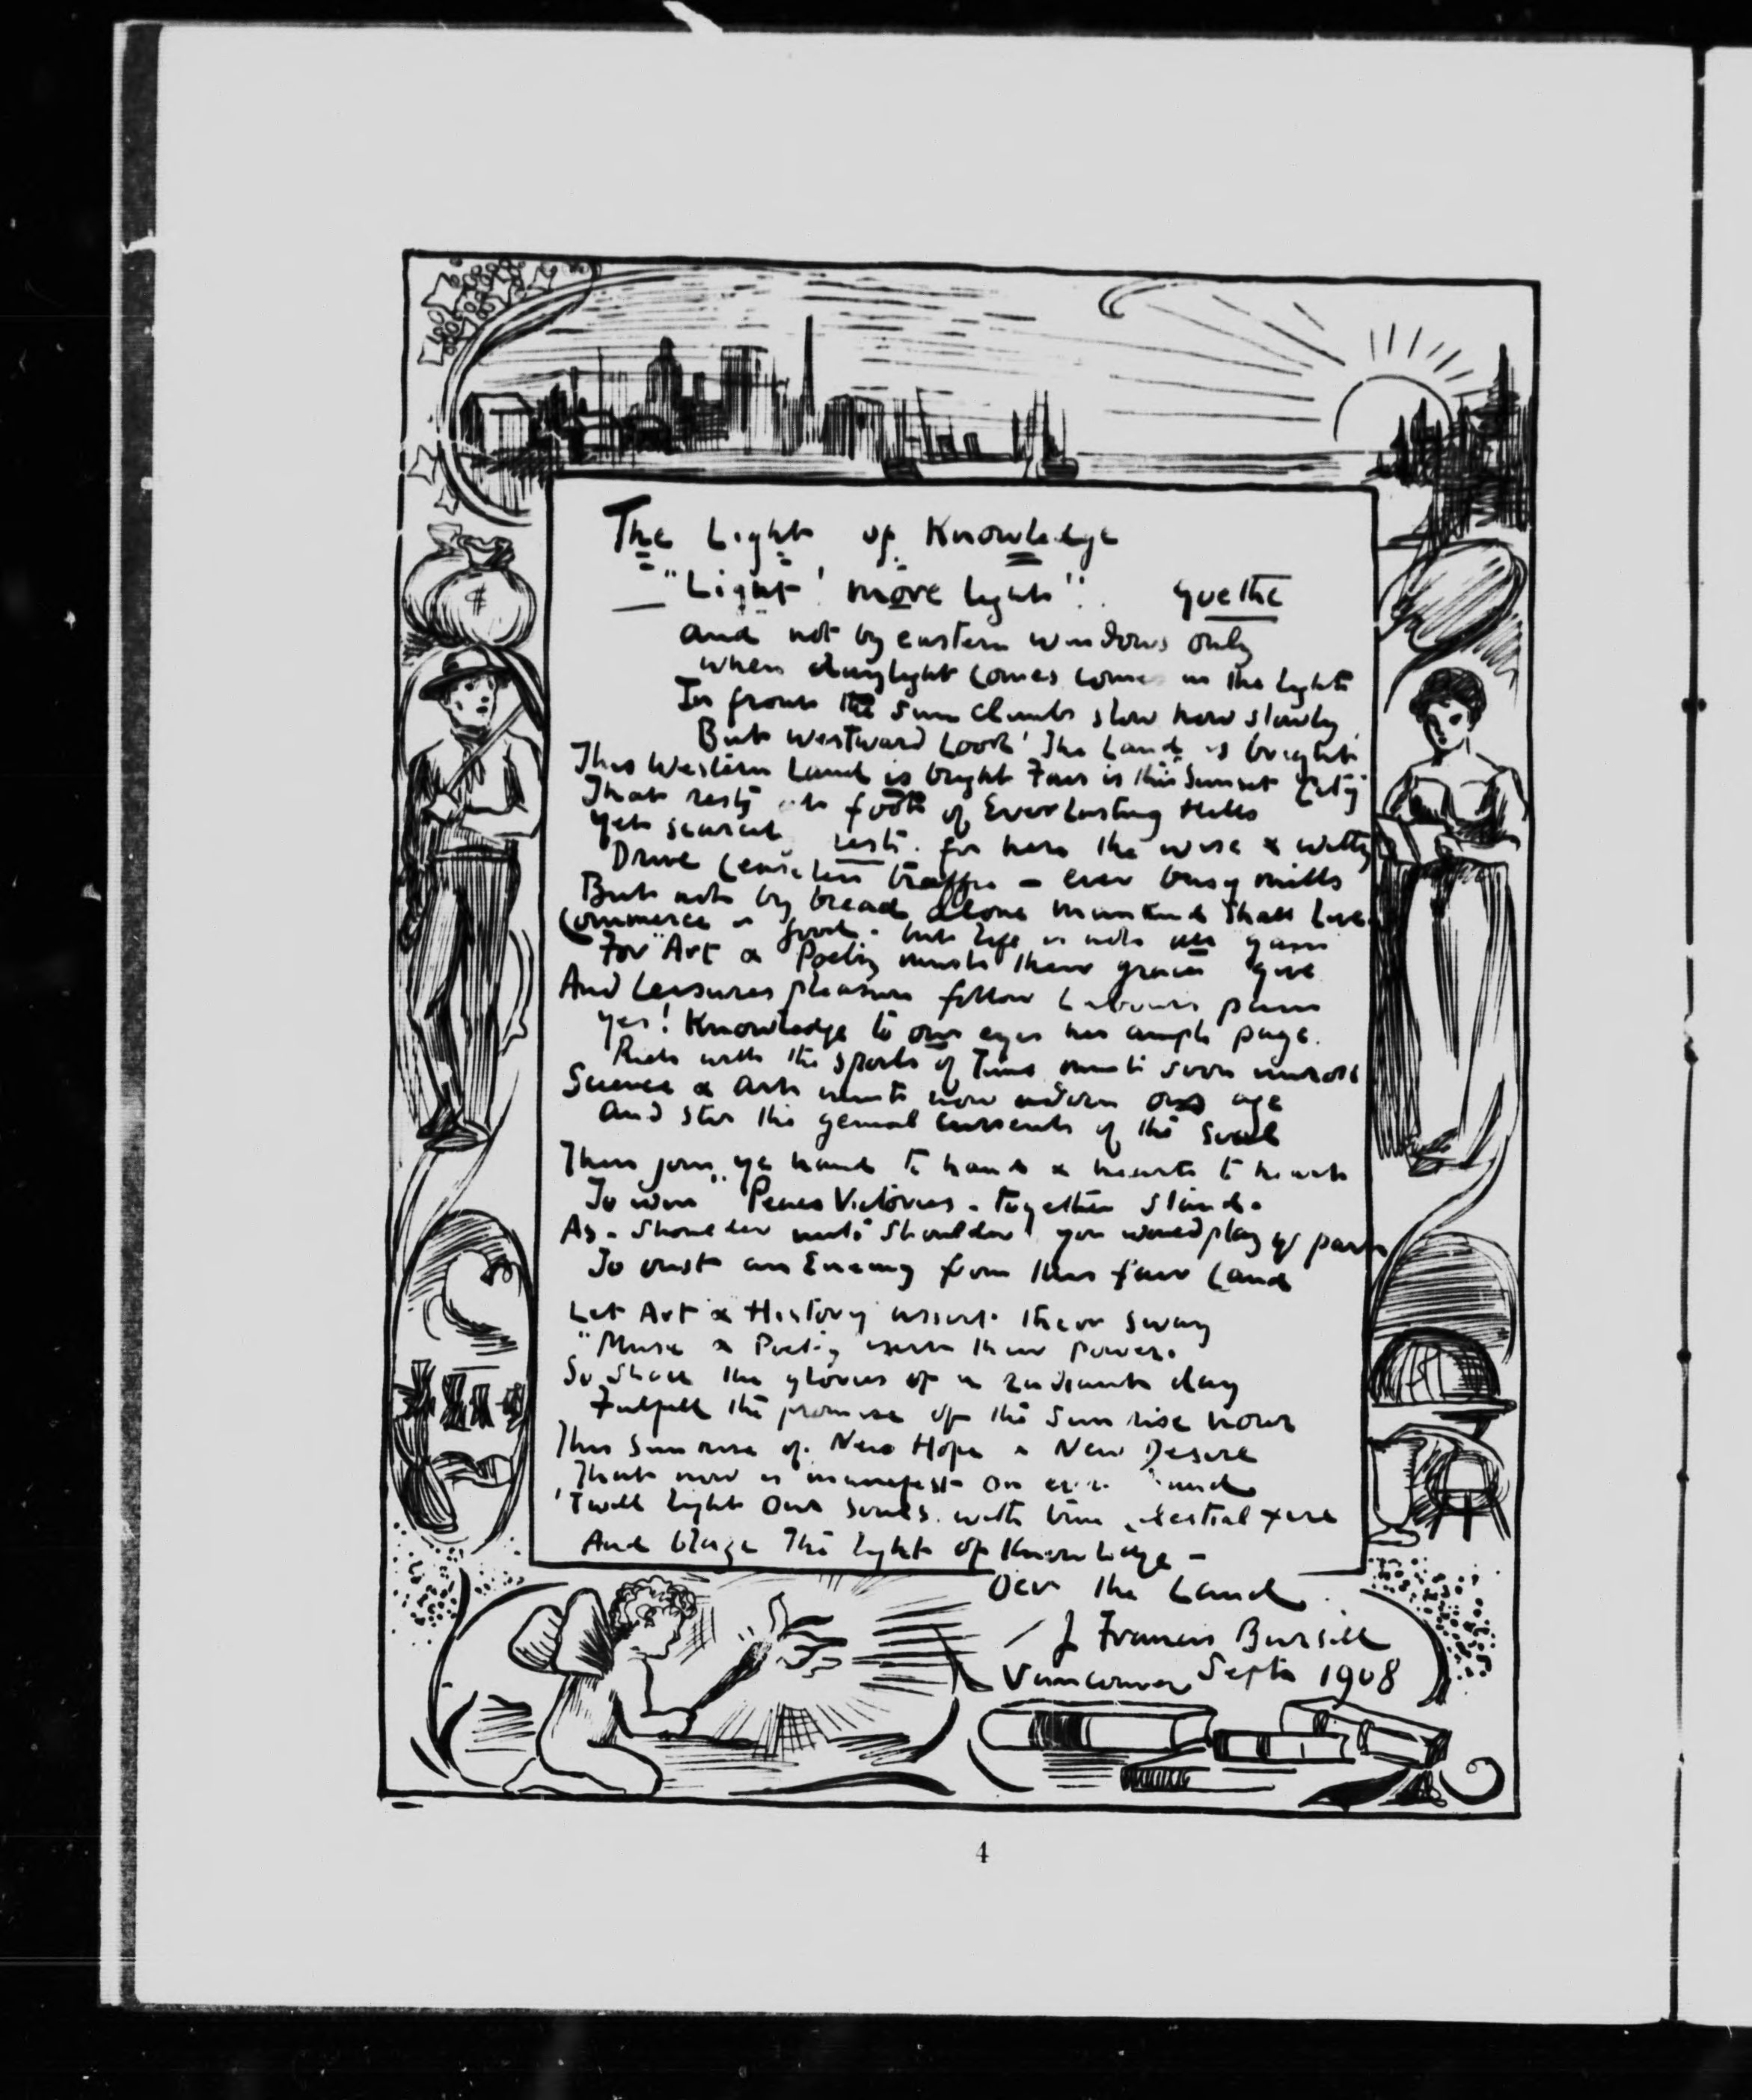 $
The Light of Knowledge
"Light! more light". Goethe
And not by eastern windows only
when daylight comes comes in the light
In front the Sun Climbs slow how slowly
But westward Look! The Land is bright
This Western Land is bright Fair is this Sunset City
That rests at foot of Everlasting Hills
Yet scarcely rests. for here the wise & witty
Drive Ceaseless traffic - ever busy mills
But not by bread alone mankind shall live
Commerce is good. but life is not all gain
For Art & Poetry must their graces give
And Leisures pleasure follow Labours pain
Yes! Knowledge to our eyes her ample page.
Rich with the spoils of Time must soon unroll
Science & Art must now adorn our age
And stir the genial currents of the Soul
Then join ye hand to hand & heart to heart
To win "Peaces Victories. together stand.
As. Shoulder unto Shoulder you would play yr part
To oust an Enemy from this fair Land
Let Art & History assert their sway
"Music & Poetry exert their power.
So shall the glories of a radiant day
Fulfill the promise of the Sun rise hour
This Sun rise of. New Hope & New Desire
That now is manifest on every hand
'Twill light Our souls. with true celestial fire
And blaze The light of Knowledge -
Oer the Land.
J Francis Bursill
Vancouver Sept 1908
4